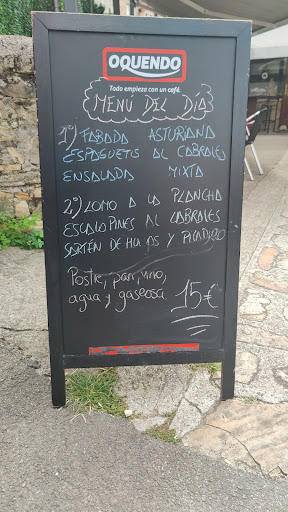 OQUENDO
Todo empieza con un café.
MENÚ DEL DÍA
1º) FABADA ASTURIANA
ESPAGUETIS AL CABRALES
ENSALADA MIXTA
2º) LOMO A LA PLANCHA
ESCALOPINES AL CABRALES
SARTÉN DE HUEVOS Y PICADILLO
Postre, pan, vino,
agua y gaseosa 15€